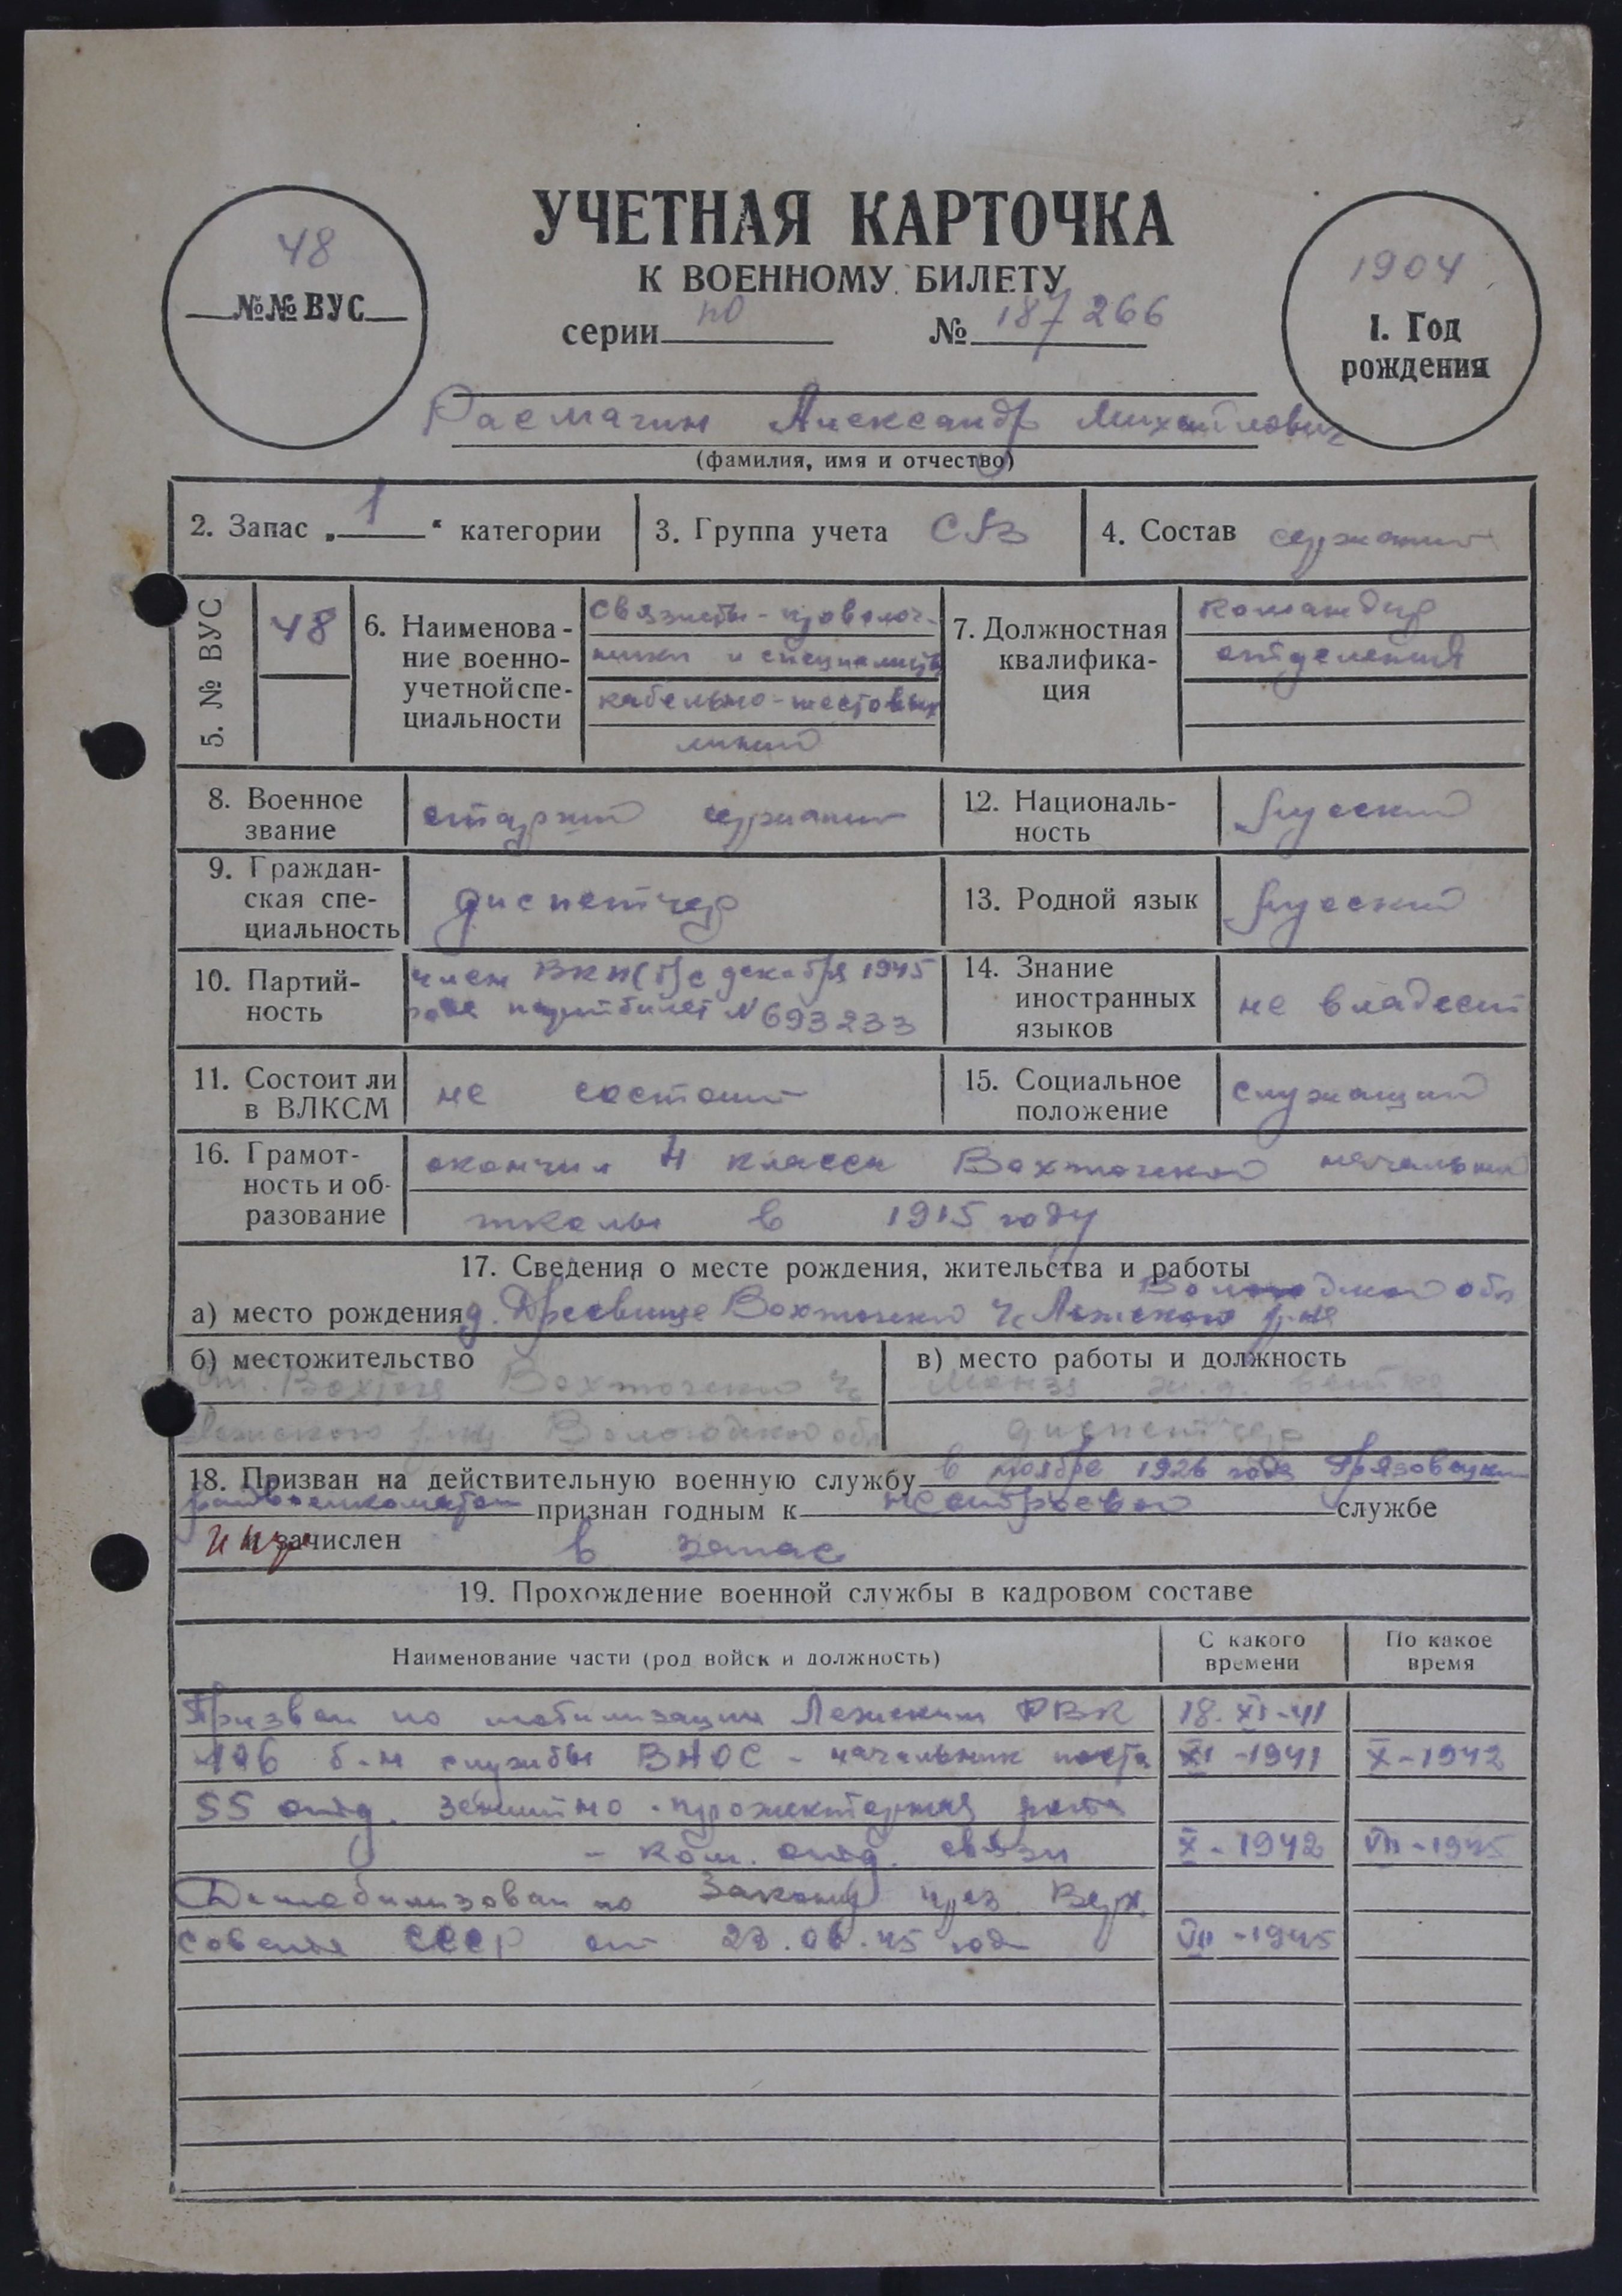 УЧЕТНАЯ КАРТОЧКА
К ВОЕННОМУ БИЛЕТУ
48
№№ ВУС
серии по № 187266
1904
1. Год
рождения
Расмагин Александр Михайлович
(фамилия, имя и отчество)
2. Запас „ 1 “ категории
3. Группа учета СВ
4. Состав сержант
5. № ВУС
48
6. Наименова-
ние военно-
учетной спе-
циальности
связисты-проволоч-
ники и специалисты
кабельно-шестовых
линий
7. Должностная
квалифика-
ция
командир
отделения
8. Военное
звание
старший сержант
12. Националь-
ность
русский
9. Граждан-
ская спе-
циальность
диспетчер
13. Родной язык
русский
10. Партий-
ность
член ВКП(б) с декабря 1945
года партбилет № 693233
14. Знание
иностранных
языков
не владеет
11. Состоит ли
в ВЛКСМ
не состоит
15. Социальное
положение
служащий
16. Грамот-
ность и об-
разование
окончил 4 класса Вохтожской начальной
школы в 1915 году
17. Сведения о месте рождения, жительства и работы
Вологодской обл
а) место рождения д. Вохтожского Лежского р-на
б) местожительство
ст. Вохтога Вохтожского
Лежского р-на Вологодской обл
в) место работы и должность
Монза ж.д. ветка
диспетчер
18. Призван на действительную военную службу в ноябре 1926 года Грязовецким
райвоенкоматом признан годным к нестроевой службе
и зачислен в запас
19. Прохождение военной службы в кадровом составе
Наименование части (род войск и должность)
С какого
времени
По какое
время
Призван по мобилизации Лежским РВК 18. XI-41
б-н службы ВНОС - начальник поста XI-1941 X-1942
55 отд. зенитно-прожекторная рота
- ком. отд. связи X-1942 VII-1945
Демобилизован по Закону през. Верх.
совета СССР от 23.06.45 года VII-1945